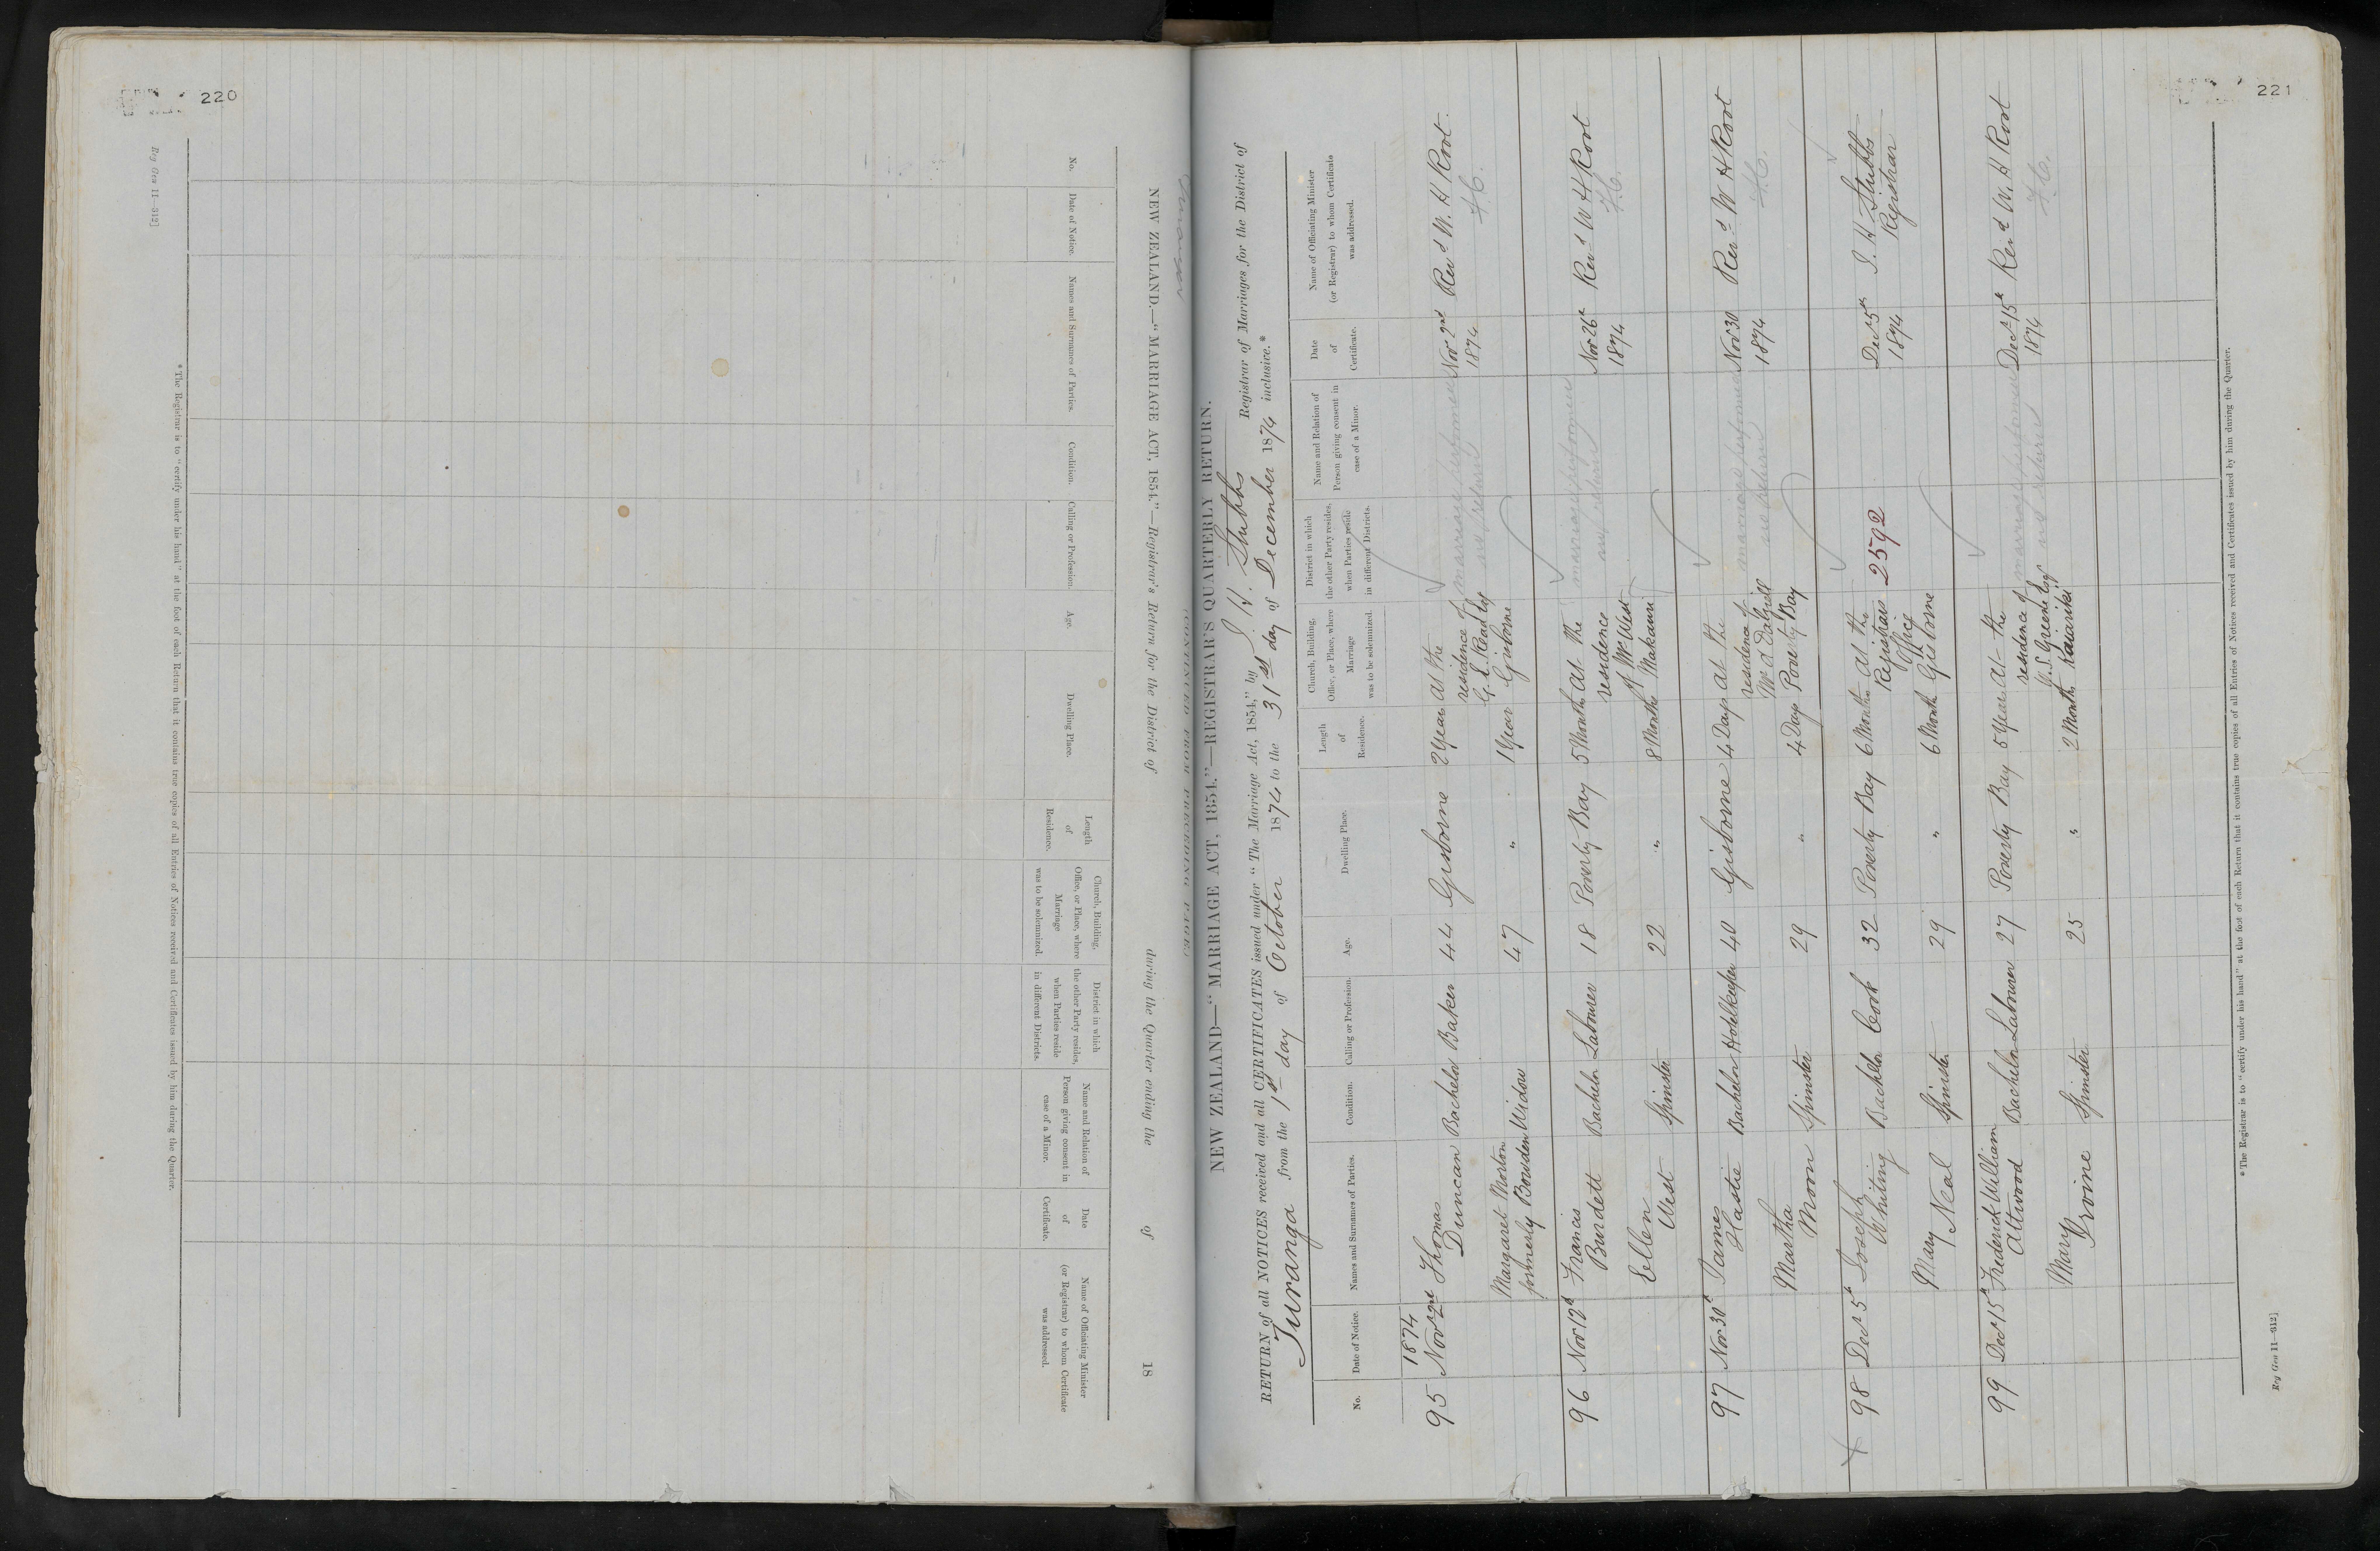 220
Reg Gen 11—312]
NEW ZEALAND.—"MARRIAGE ACT, 1854."—Registrar's Return for the District of during the Quarter ending the of 18
No.
Date of Notice.
Names and Surnames of Parties.
Condition.
Calling or Profession.
Age.
Dwelling Place.
Length
of
Residence.
Church, Building,
Office, or Place, where
Marriage
was to be solemnized.
District in which
the other Party resides,
when Parties reside
in different Districts.
Name and Relation of
Person giving consent in
case of a Minor.
Date
of
Certificate.
Name of Officiating Minister
(or Registrar) to whom Certificate
was addressed.
*The Registrar is to "certify under his hand" at the foot of each Return that it contains true copies of all Entries of Notices received and Certificates issued by him during the Quarter.
221
NEW ZEALAND—"MARRIAGE ACT, 1854."—REGISTRAR'S QUARTERLY RETURN.
RETURN of all NOTICES received and all CERTIFICATES issued under "The Marriage Act, 1854," by J. H. Stubbs Registrar of Marriages for the District of
Turanga from the 1st day of October 1874 to the 31st day of December 1874 inclusive.*
No.
Date of Notice.
Names and Surnames of Parties.
Condition.
Calling or Profession.
Age.
Dwelling Place.
Length
of
Residence.
Church, Building,
Office, or Place, where
Marriage
was to be solemnized.
District in which
the other Party resides,
when Parties reside
in different Districts.
Name and Relation of
Person giving consent in
case of a Minor.
Date
of
Certificate.
Name of Officiating Minister
(or Registrar) to whom Certificate
was addressed.
1874
95 Nov 2nd Thomas Duncan Bachelor Baker 44 Gisborne 2 Year at the residence of G. E. Read Esq Gisborne marriage performed Nov 2nd 1874 Revd W. H. Root. F.C.
Margaret Morton formerly Bowden Widow 47 " 1 Year
96 Nov 12th Francis Burdett Bachelor Labourer 18 Poverty Bay 5 Month At the residence of Mr West Makauri marriage performed Nov 26th 1874 Revd W H Root F.C.
Ellen West Spinster 22 " 8 Months
97 Nov 30th James Hastie Bachelor Hotelkeeper 40 Gisborne 4 Days at the residence of Mr Dalziell Poverty Bay marriage performed Nov 30 1874 Revd W H Root F.C.
Martha Moon Spinster 29 " 4 Days
98 Decr 5th Joseph Whiting Bachelor Cook 32 Poverty Bay 6 Months at the Registrars Office Gisborne 2592 Decr 5th 1874 J. H. Stubbs Registrar
Mary Neal Spinster 29 " 6 Month
99 Decr 15th Frederick William Attwood Bachelor Labourer 27 Poverty Bay 5 Years At the residence of Greene Esq marriage performed Decr 15th 1874 Revd W. H Root F.C.
Mary Irvine Spinster 25 " 2 Month
*The Registrar is to "certify under his hand" at the foot of each Return that it contains true copies of all Entries of Notices received and Certificates issued by him during the Quarter.
Reg Gen 11—312]